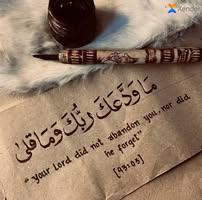 Xender
مَا وَدَّعَكَ رَبُّكَ وَمَا قَلَىٰ
"your Lord did not abandon you, nor did
he forget"
[93:03]